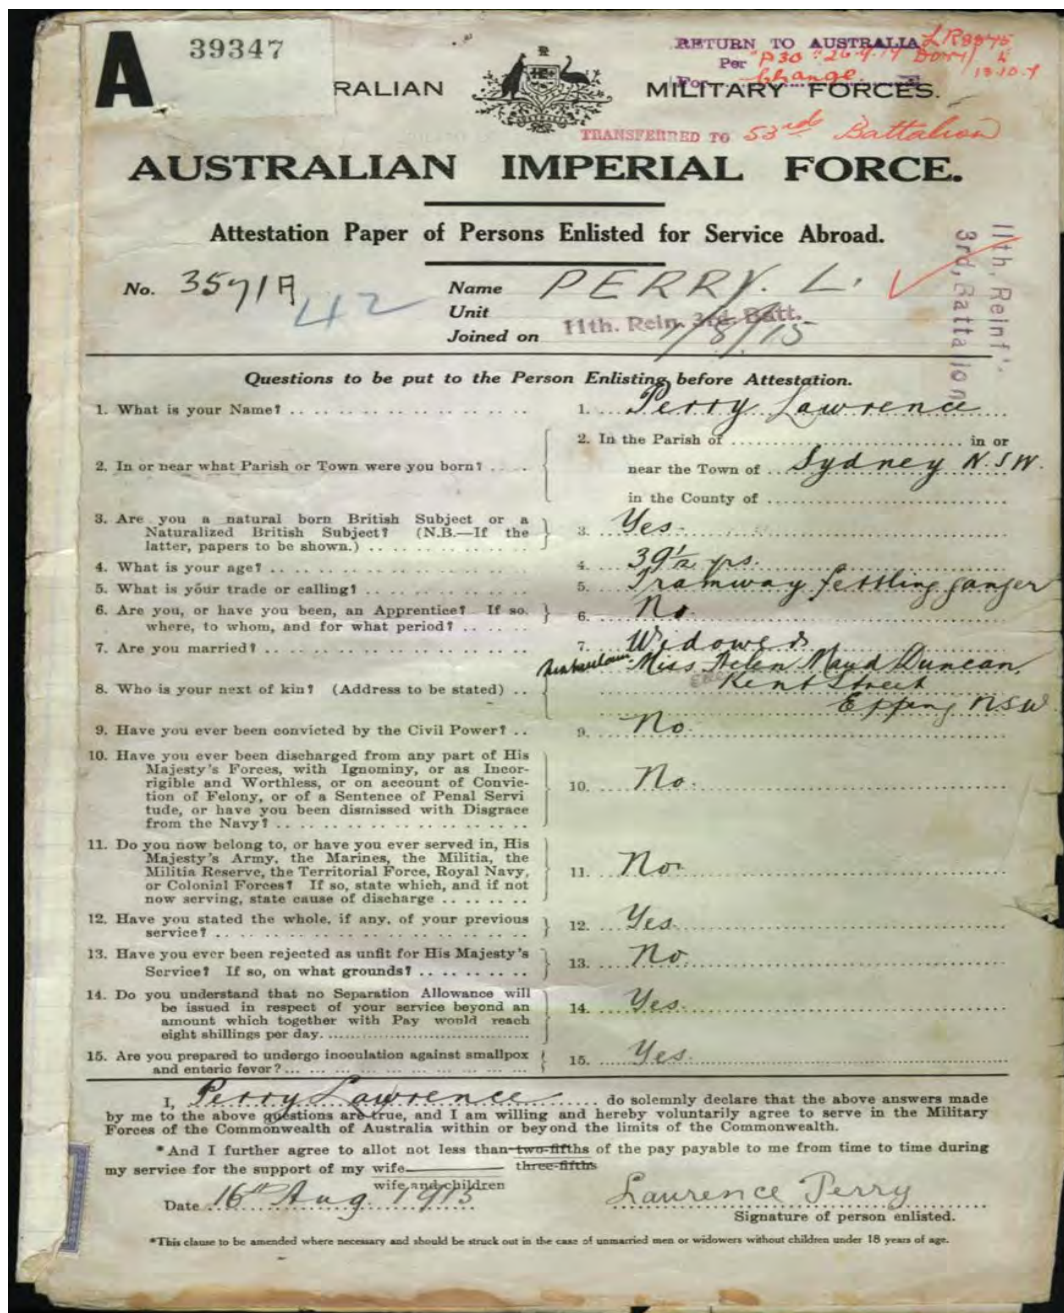 A 39347
RETURN TO AUSTRALIA
Per "P30" 26.9.17
For Change.
RALIAN MILITARY FORCES.
TRANSFERRED TO 53rd Battalion
AUSTRALIAN IMPERIAL FORCE.
Attestation Paper of Persons Enlisted for Service Abroad.
11th, Reinf'.
3rd, Battalion
No. 3571A 42 Name PERRY. L.
Unit 11th. Rein. 3rd. Batt.
Joined on 1/8/15
Questions to be put to the Person Enlisting before Attestation.
1. What is your Name? 1. Perry Lawrence
2. In or near what Parish or Town were you born? 2. In the Parish of in or
near the Town of Sydney N.S.W.
in the County of
3. Are you a natural born British Subject or a
Naturalized British Subject? (N.B.—If the 3. Yes
latter, papers to be shown.)
4. What is your age? 4. 39½ yrs.
5. What is your trade or calling? 5. Tramway fettling ganger
6. Are you, or have you been, an Apprentice? If so, 6. No.
where, to whom, and for what period?
7. Are you married? 7. Widower
8. Who is your next of kin? (Address to be stated) Miss Helen Maud Duncan
Kent Street
Epping NSW
9. Have you ever been convicted by the Civil Power? 9. No.
10. Have you ever been discharged from any part of His
Majesty's Forces, with Ignominy, or as Incor-
rigible and Worthless, or on account of Convic- 10. No.
tion of Felony, or of a Sentence of Penal Servi
tude, or have you been dismissed with Disgrace
from the Navy?
11. Do you now belong to, or have you ever served in, His
Majesty's Army, the Marines, the Militia, the
Militia Reserve, the Territorial Force, Royal Navy, 11. No
or Colonial Forces? If so, state which, and if not
now serving, state cause of discharge
12. Have you stated the whole, if any, of your previous 12. Yes.
service?
13. Have you ever been rejected as unfit for His Majesty's 13. No
Service? If so, on what grounds?
14. Do you understand that no Separation Allowance will
be issued in respect of your service beyond an 14. Yes.
amount which together with Pay would reach
eight shillings per day.
15. Are you prepared to undergo inoculation against smallpox 15. Yes.
and enteric fever?
I, Perry Lawrence do solemnly declare that the above answers made
by me to the above questions are true, and I am willing and hereby voluntarily agree to serve in the Military
Forces of the Commonwealth of Australia within or beyond the limits of the Commonwealth.
*And I further agree to allot not less than two-fifths of the pay payable to me from time to time during
three-fifths
my service for the support of my wife
wife and children
Date 16th Aug. 1915 Laurence Perry
Signature of person enlisted.
*This clause to be amended where necessary and should be struck out in the case of unmarried men or widowers without children under 18 years of age.